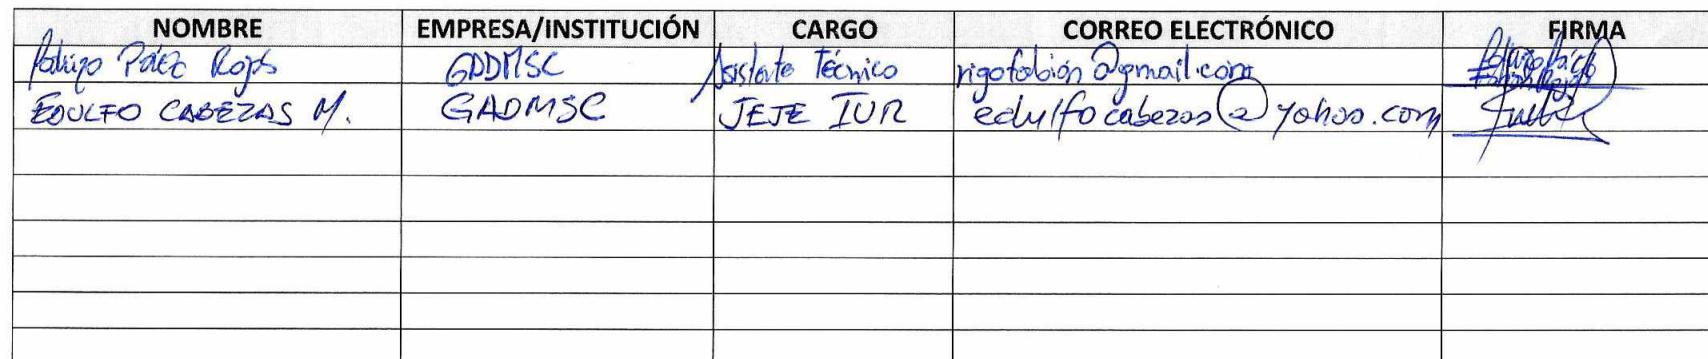 NOMBRE EMPRESA/INSTITUCIÓN CARGO CORREO ELECTRÓNICO FIRMA
Rodrigo Páez Rojas GADMSC Asistente Técnico rigofabian@gmail.com
EDULFO CABEZAS M. GADMSC JEFE IUR edulfocabezas@yahoo.com